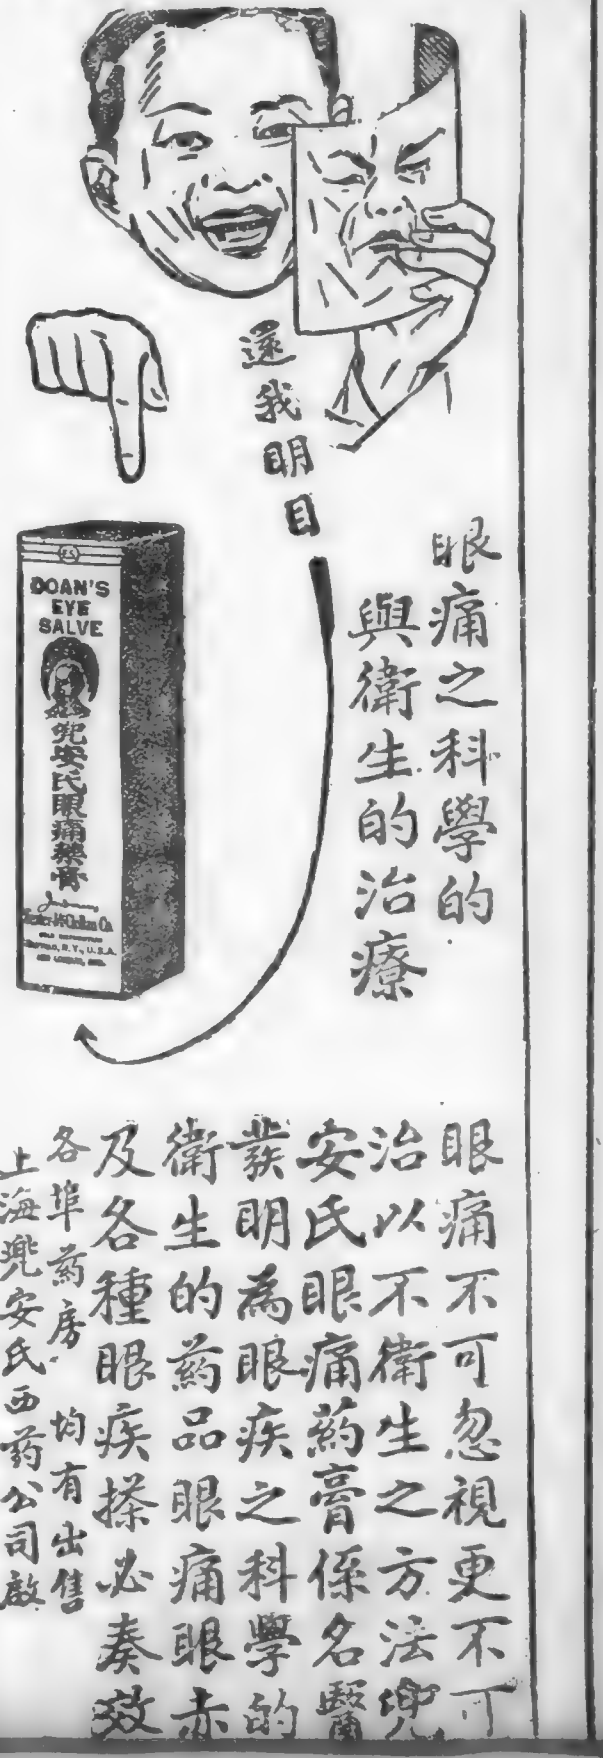 還我明目
眼痛之科學的
與衛生的治療
DOAN'S
EYE
SALVE
兜安氏眼痛藥膏
Foster-McClellan Co.
BUFFALO, N.Y., U.S.A.
眼痛不可忽視更不可
治以不衛生之方法兜
安氏眼痛葯膏係名醫
發明為眼疾之科學的
衛生的葯品眼痛眼赤
及各種眼疾搽必奏效
各埠葯房 均有出售
上海兜安氏西葯公司啟